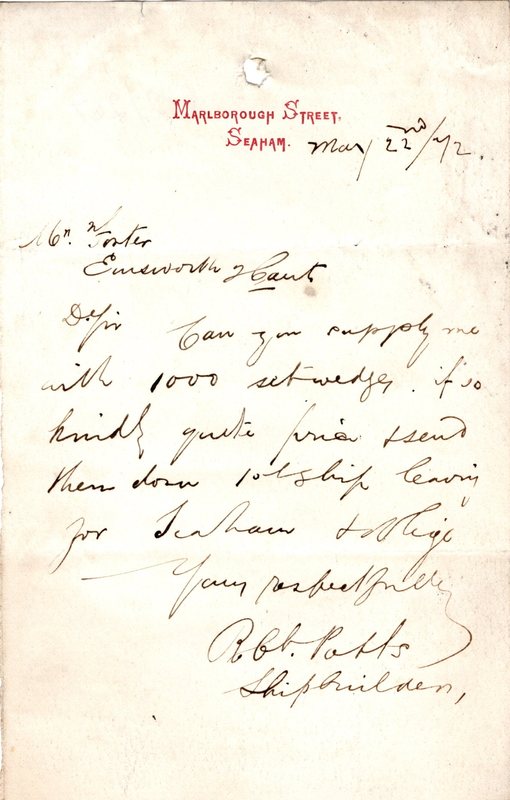 MARLBOROUGH STREET,
SEAHAM.
May 22nd/72.
Mr. Foster
Emsworth Hant
D. Sir Can you supply me
with 1000 set wedges. if so
kindly quote price & send
them down 1st ship leaving
for Seaham & oblige
Yours respectfully
Robt. Potts
Shipbuilder,